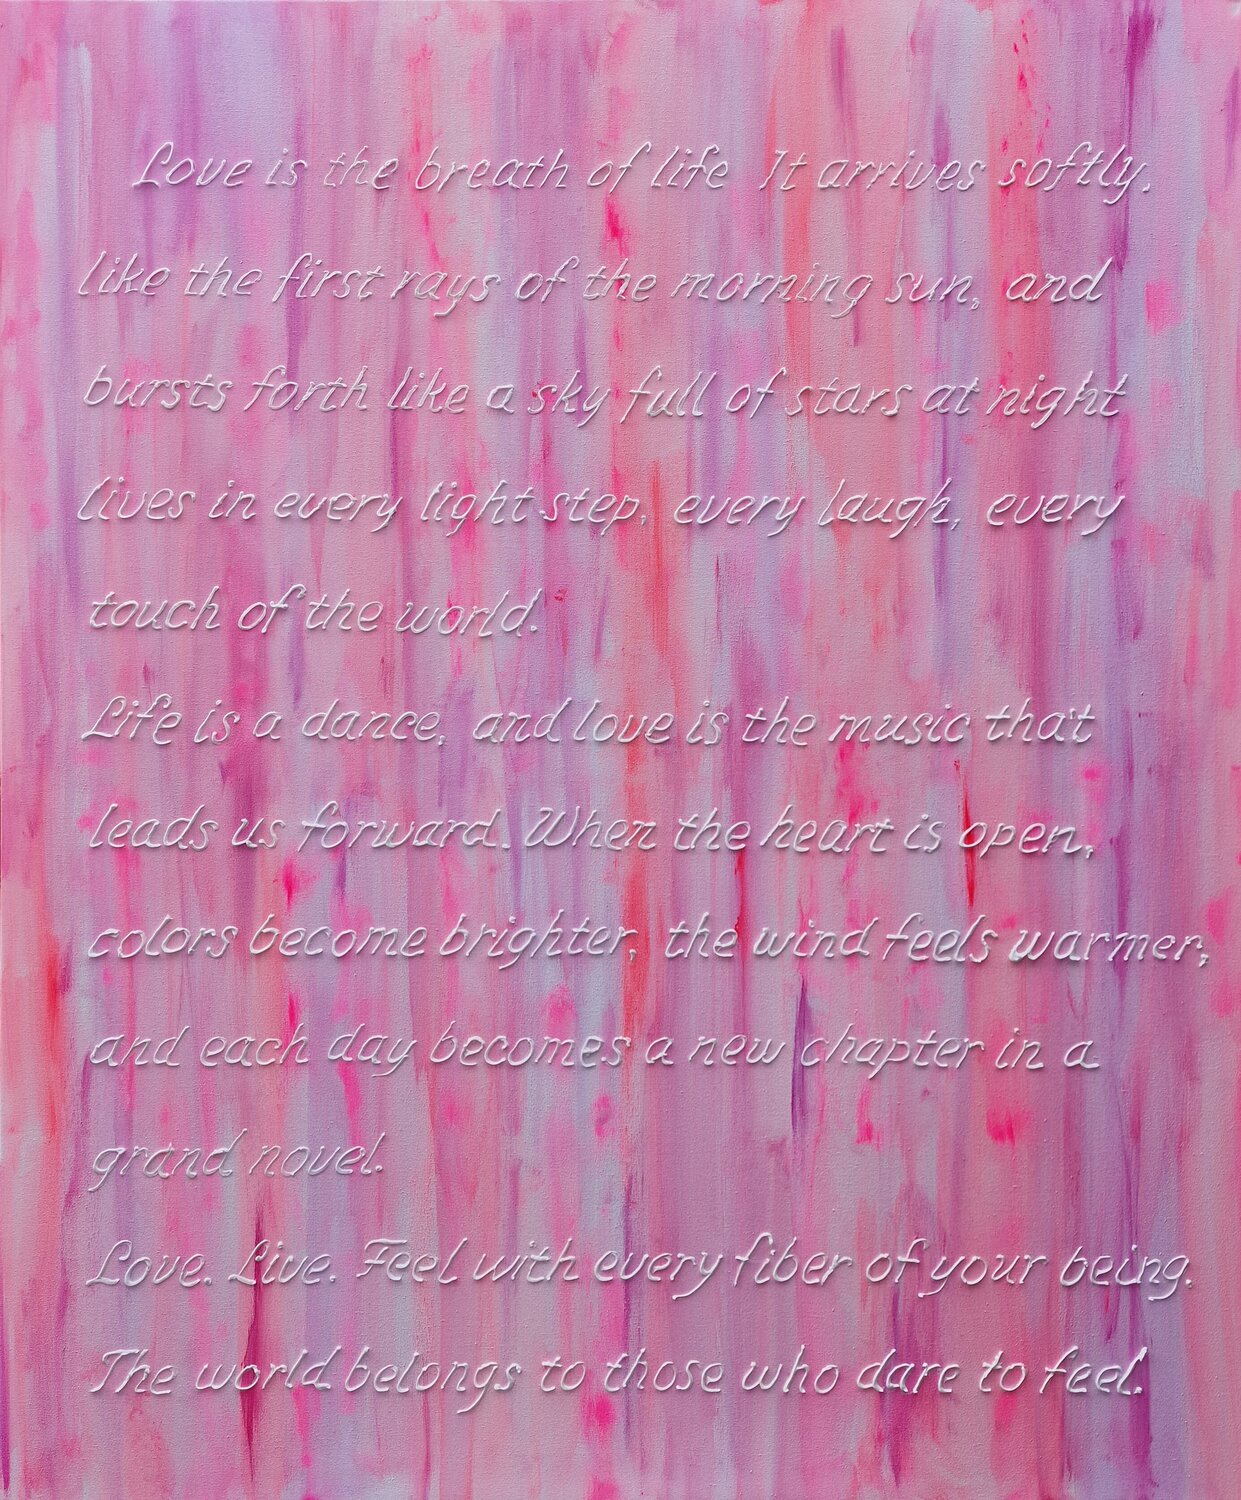 Love is the breath of life It arrives softly,
like the first rays of the morning sun, and
bursts forth like a sky full of stars at night
lives in every light step, every laugh, every
touch of the world.
Life is a dance, and love is the music that
leads us forward. When the heart is open,
colors become brighter, the wind feels warmer,
and each day becomes a new chapter in a
grand novel.
Love. Live. Feel with every fiber of your being.
The world belongs to those who dare to feel.